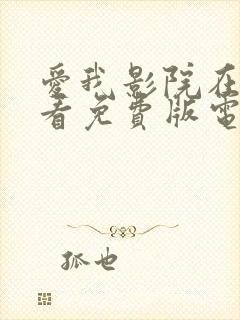 愛我影院在
看免費版電
孤也